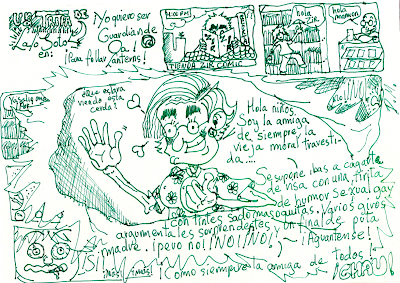 Layo Solo
en:
¡No quiero ser
Guardian de
Oa!
¡Para follar Lanterns!
TIENDA ZIR COMIC
hola
ZIR
hola
¿Que estara
viendo esta
cerda?
Hola niños,
Soy la amiga
de "siempre" la
vieja moral travesti-
da....
Se supone ibas a cagarte
de risa con una tirita
de humor sexual gay
con tintes sadomasoquitas. Varios giros
argumentales sorprendentes y un final de puta
madre. ¡pero no! ¡NO! ¡NO!
¡Aguantense!
¡Como siempre la amiga de todos!
¡CHAU!